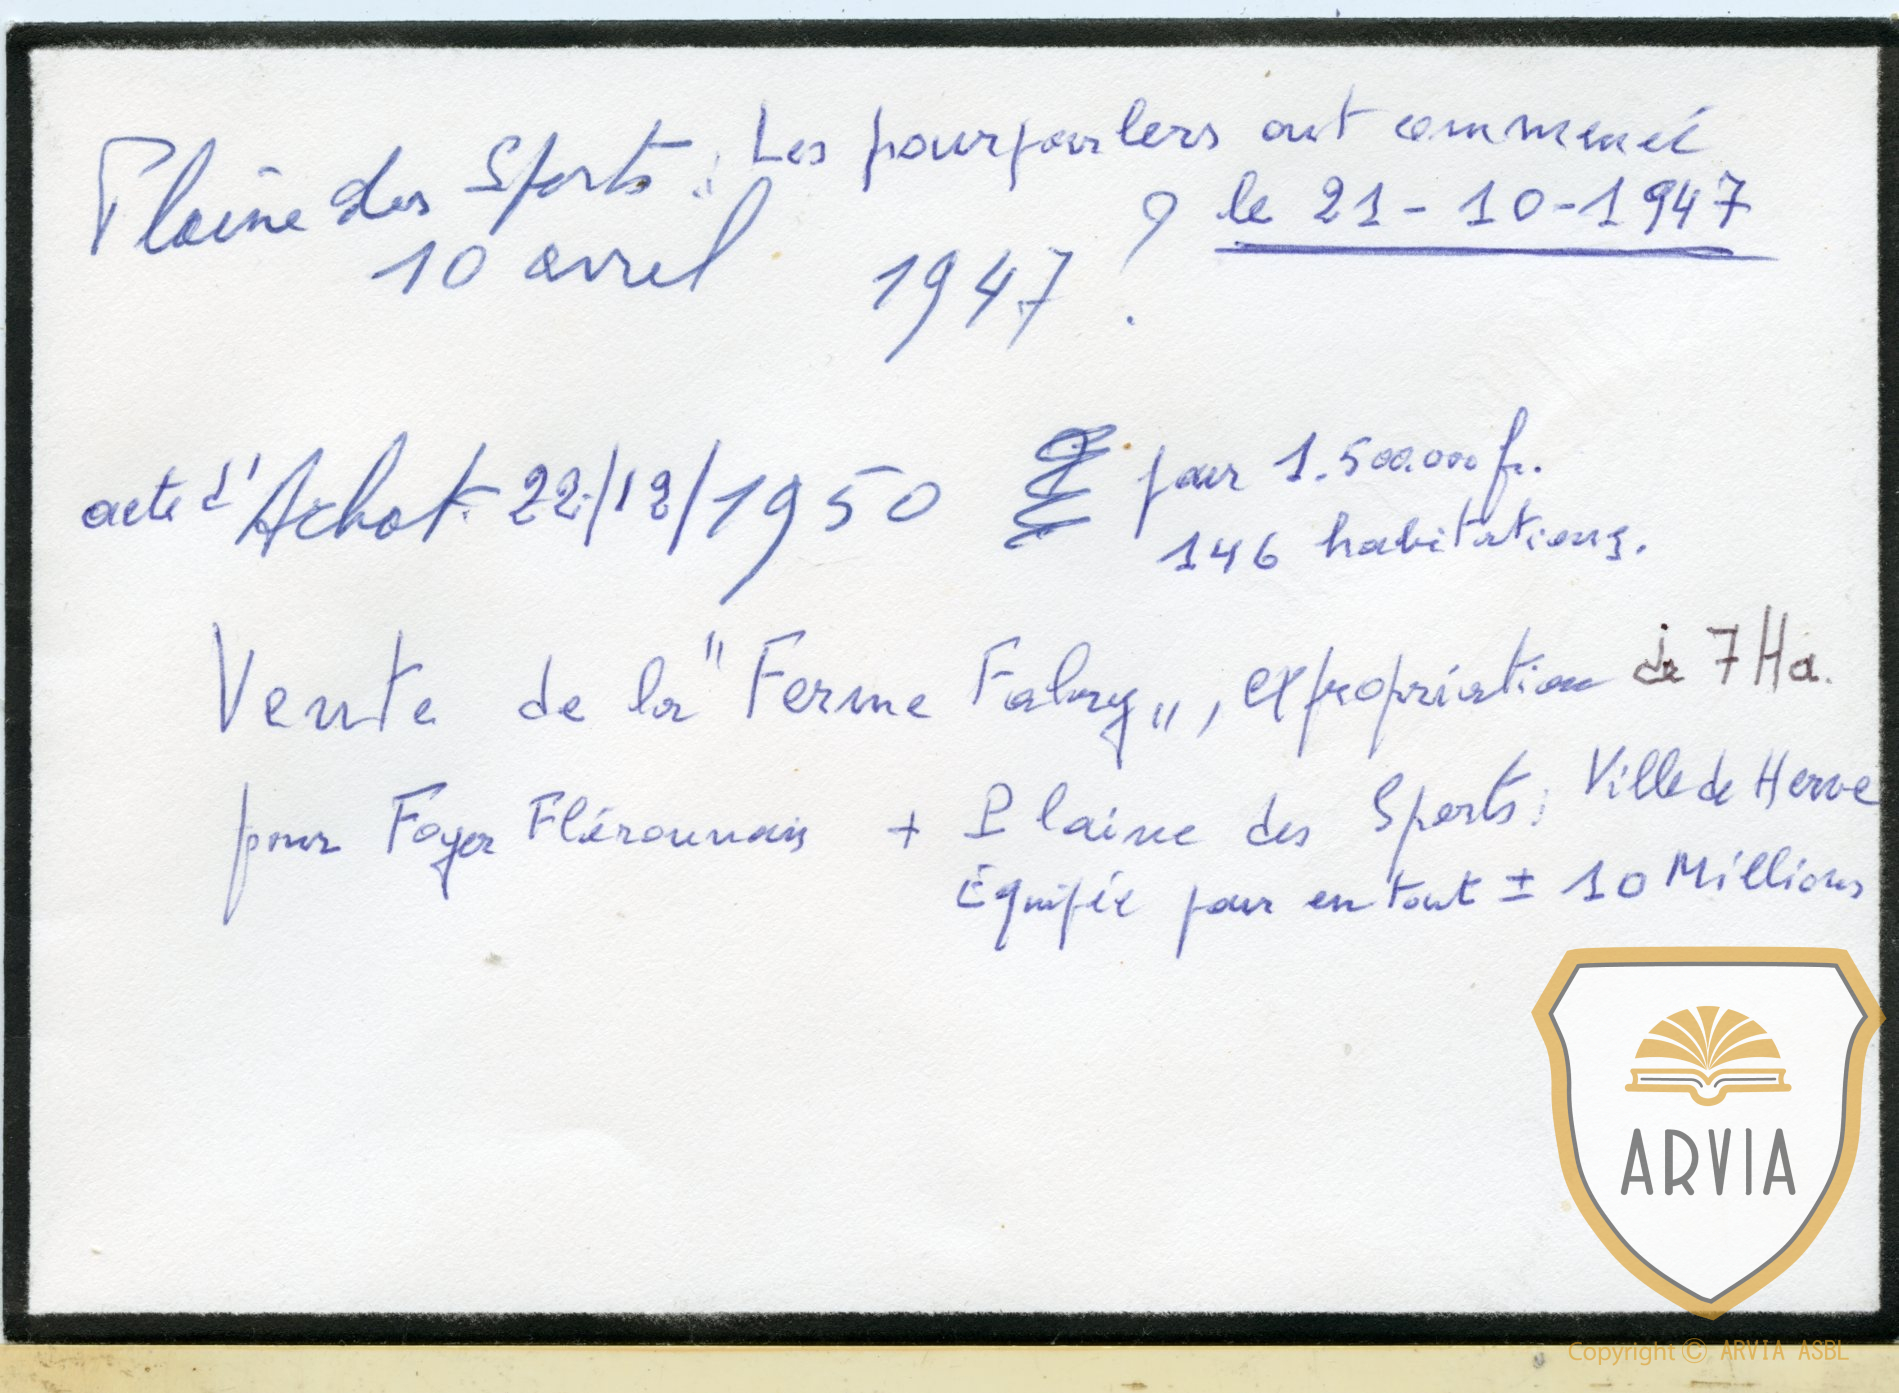 Plaine des Sports : Les pourparlers ont commencé
10 avril 1947 ? le 21-10-1947
acte d'Achat 22/12/1950 pour 1.500.000 fr.
146 habitations.
Vente de la "Ferme Fabry", expropriation de 7 Ha.
pour Foyer Fléronnais + Plaine des Sports; Ville de Herve
Équipée pour en tout ± 10 Millions
ARVIA
Copyright © ARVIA ASBL